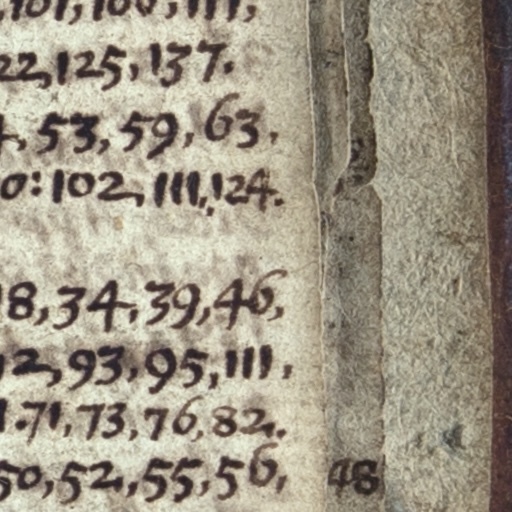 101, 106, 111,
22, 125, 137.
4, 53, 59, 63.
0: 102, 111, 124.
18, 34, 39, 46,
12, 93, 95, 111,
1. 71, 73, 76, 82.
50, 52, 55, 56, 48